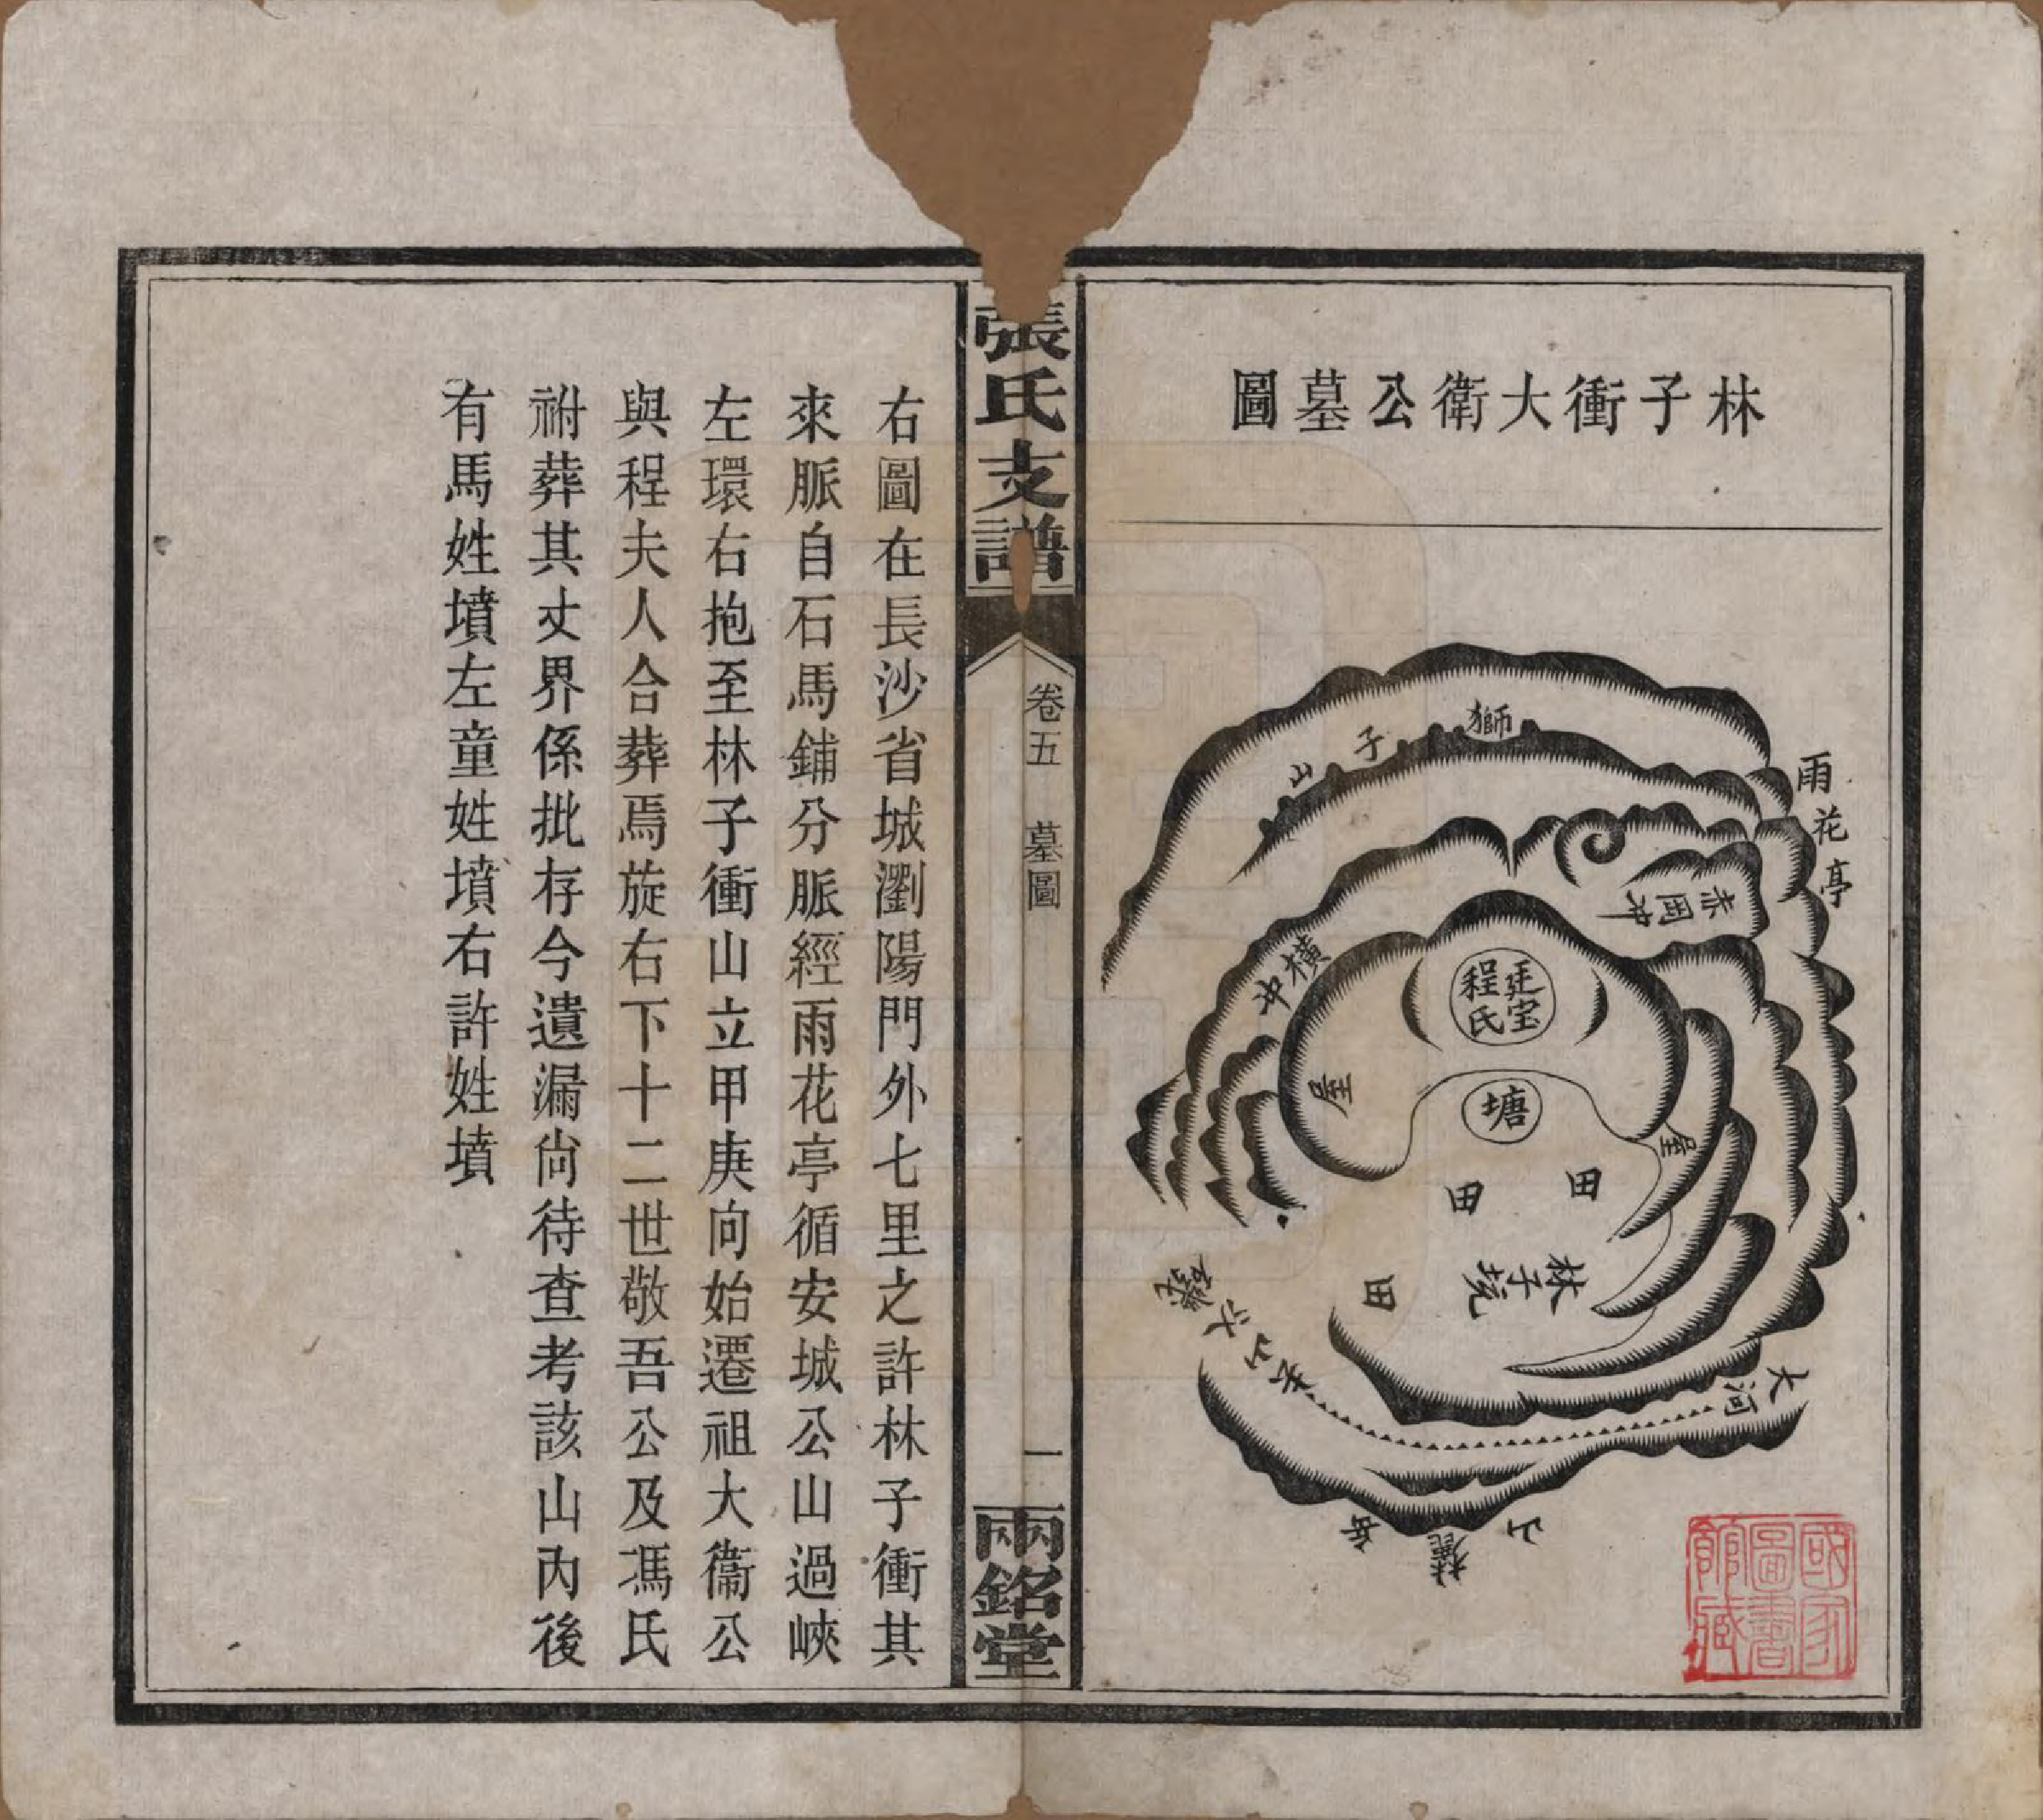 林子衝大衛公墓圖
獅子山
雨花亭
赤岡冲
橫冲
廷宝
程氏
塘
屋
屋
田
田
田
林子塅
大河
岳麓山
國家圖書館藏
張氏支譜
卷五 墓圖
一
兩銘堂
右圖在長沙省城瀏陽門外七里之許林子衝其
來脈自石馬鋪分脈經雨花亭循安城公山過峽
左環右抱至林子衝山立甲庚向始遷祖大衞公
與程夫人合葬焉旋右下十二世敬吾公及馮氏
祔葬其丈界係批存今遺漏尙待查考該山內後
有馬姓墳左童姓墳右許姓墳